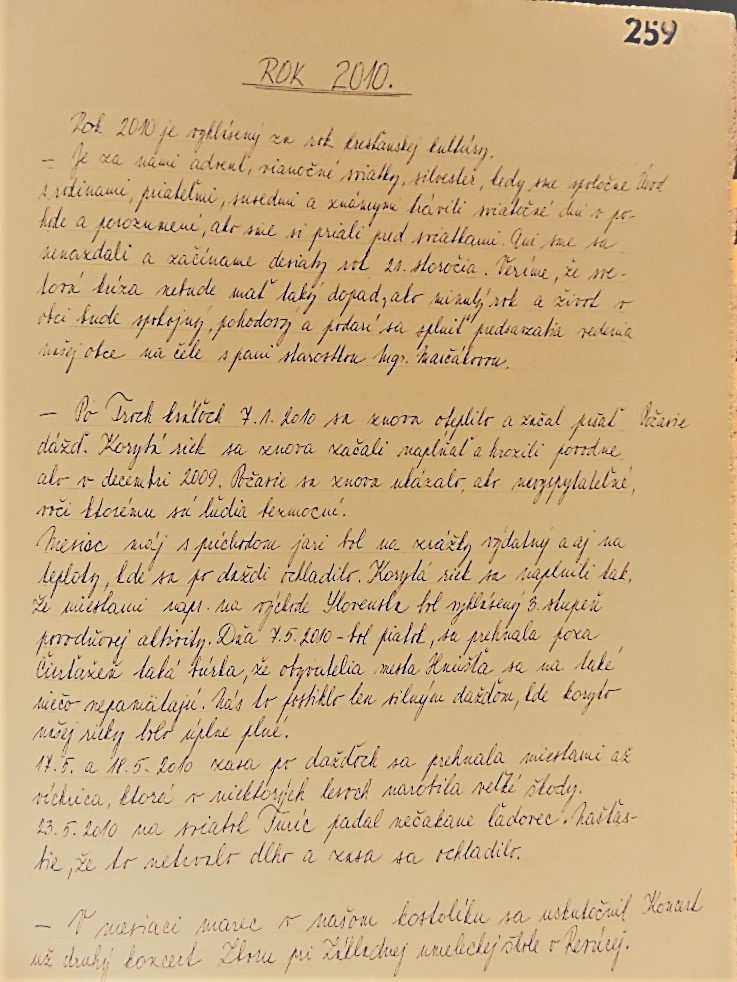 259
ROK 2010.
Rok 2010 je vyhlásený za rok kresťanskej kultúry.
– Je za nami advent, vianočné sviatky, silvester, kedy sme spoločne Úvod
s rodinami, priateľmi, susedmi a známymi trávili sviatočné dni v po-
hode a porozumení, ako sme si priali pred sviatkami. Ani sme sa
nenazdali a začíname deviaty rok 21. storočia. Veríme, že sve-
tová kríza nebude mať taký dopad, ako minulý rok a život v
obci bude spokojný, pohodový a podarí sa splniť predsavzatia vedenia
našej obce na čele s pani starostkou Mgr. Marčákovou.
– Po Troch kráľoch 7.1. 2010 sa znova oteplilo a začal pršať Počasie
dážď. Korytá riek sa znova začali napĺňať a hrozili povodne
ako v decembri 2009. Počasie sa znova ukázalo, ako nevyspytateľné,
voči ktorému sú ľudia bezmocní.
Mesiac máj s príchodom jari bol na zrážky výdatný a aj na
teploty, kde sa po daždi ochladilo. Korytá riek sa naplnili tak,
že miestami napr. na východe Slovenska bol vyhlásený 3. stupeň
povodňovej aktivity. Dňa 7.5. 2010 – bol piatok, sa prehnala poza
Čierťažež taká búrka, že obyvatelia mesta Hnúšťa sa na také
niečo nepamätajú. Nás to postihlo len silným dažďom, kde koryto
našej riečky bolo úplne plné.
17.5. a 18.5. 2010 zasa po dažďoch sa prehnala miestami až
víchrica, ktorá v niektorých lesoch narobila veľké škody.
23.5. 2010 na sviatok Turíc padal nečakane ľadovec. Našťas-
tie, že to netrvalo dlho a zasa sa ochladilo.
– V mesiaci marec v našom kostolíku sa uskutočnil Koncert
už druhý koncert Zboru pri Základnej umeleckej škole v Revúcej.